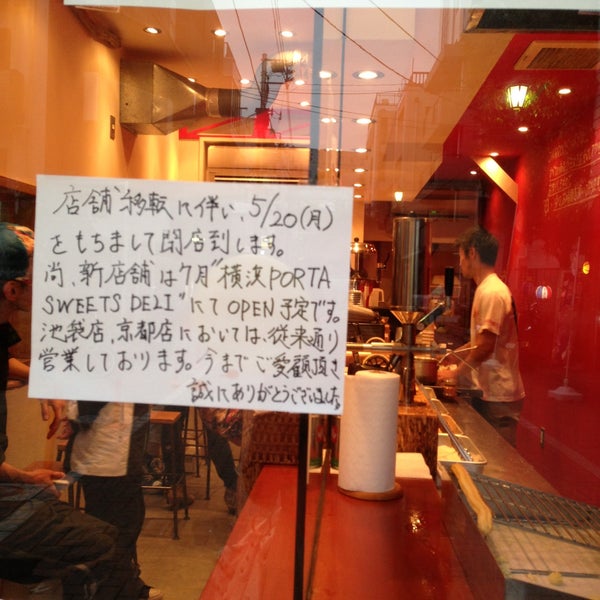 店舗移転に伴い、5/20(月)
をもちまして閉店到します。
尚、新店舗は7月"横浜PORTA
SWEETS DELI"にてOPEN予定です。
池袋店、京都店においては、従来通り
営業しております。今までご愛顧頂き
誠にありがとうございました。